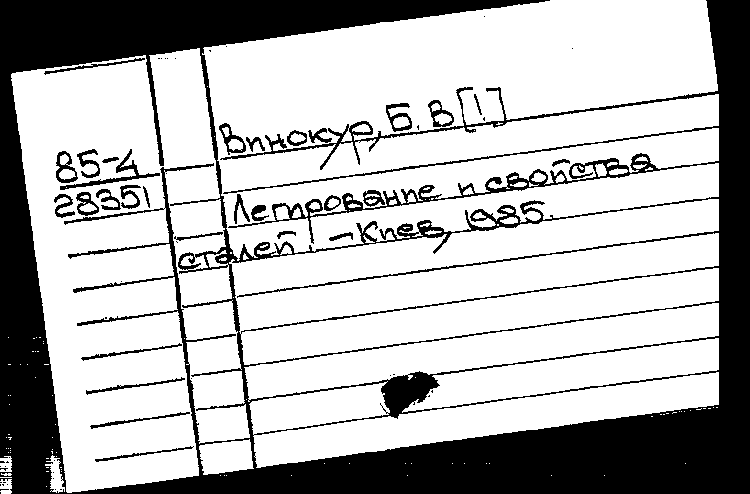 Винокур, Б. В [!]
85-4
28351
Легирование и свойства
сталей. – Киев, 1985.